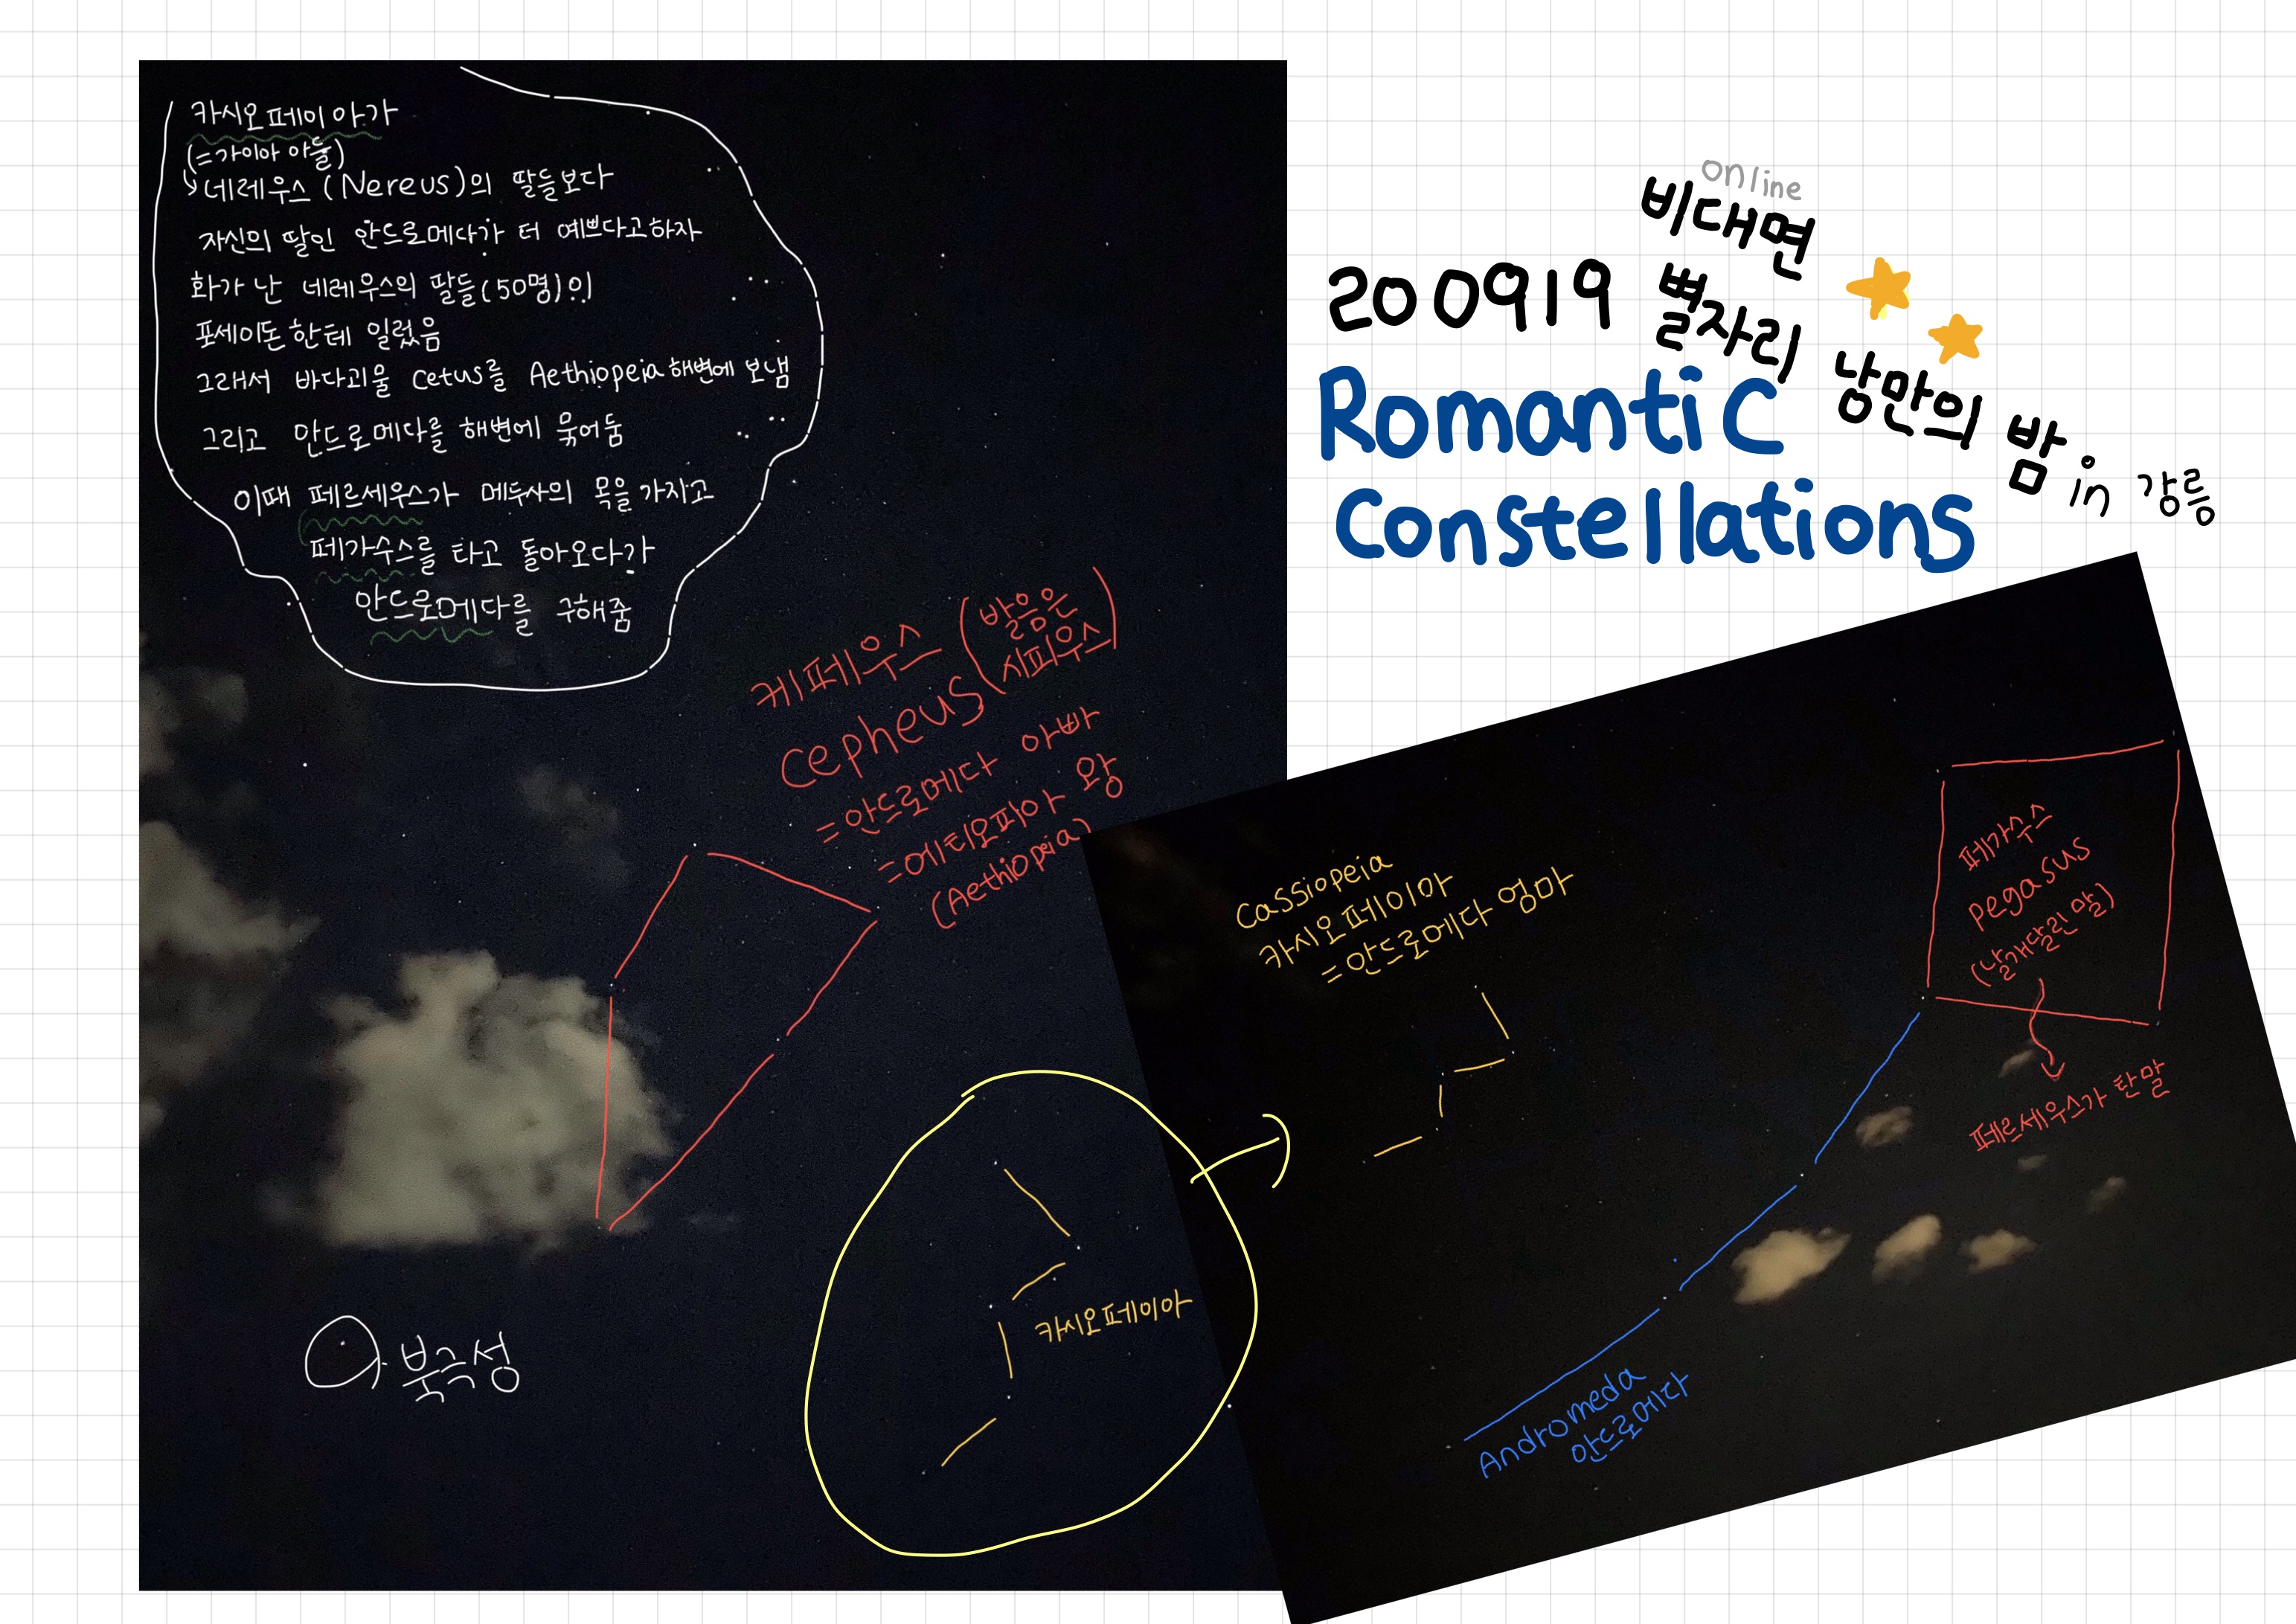 카시오페이아가
(=가이아 아들)
↳네레우스(Nereus)의 딸들보다
자신의 딸인 안드로메다가 더 예쁘다고하자
화가 난 네레우스의 딸들(50명)이
포세이돈한테 일렀음
그래서 바다괴물 Cetus를 Aethiopeia해변에 보냄
그리고 안드로메다를 해변에 묶어둠
이때 페르세우스가 메두사의 목을 가지고
페가수스를 타고 돌아오다가
안드로메다를 구해줌
online
비대면
200919 별자리 낭만의 밤 in 강릉
Romantic
Constellations
케페우스 (발음은
시피우스)
Cepheus
=안드로메다 아빠
=에티오피아 왕
(Aethiopeia)
Cassiopeia
카시오페이아
=안드로메다 엄마
페가수스
pegasus
(날개달린 말)
페르세우스가 탄말
카시오페이아
북극성
Andromeda
안드로메다